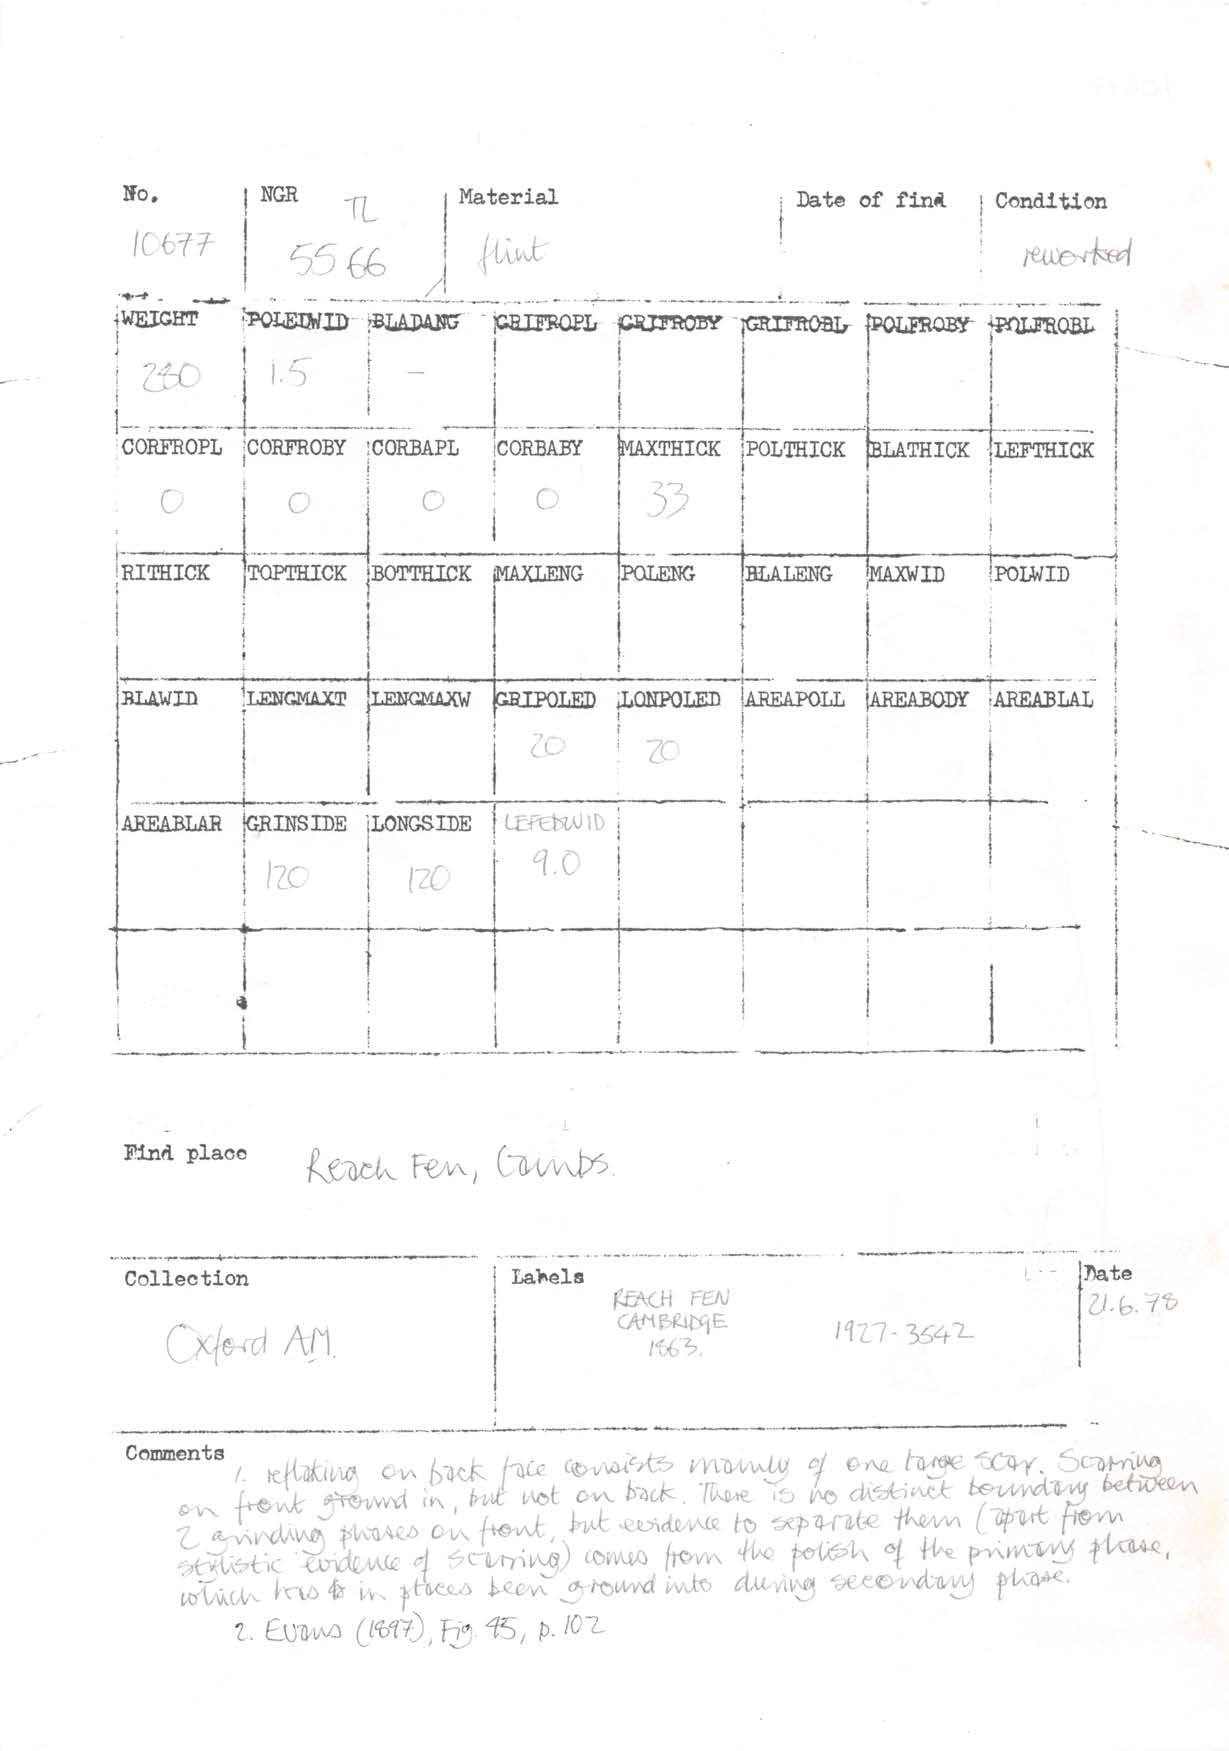 No. NGR Material Date of find Condition
TL
10677 5566 flint reworked
WEIGHT POLEDWID BLADANG GRIFROPL GRIFROBY GRIFROBL POLFROBY POLFROBL
280 1.5 -
CORFROPL CORFROBY CORBAPL CORBABY MAXTHICK POLTHICK BLATHICK LEFTHICK
0 0 0 0 33
RITHICK TOPTHICK BOTTHICK MAXLENG POLENG BLALENG MAXWID POLWID
BLAWID LENGMAXT LENGMAXW GRIPOLED LONPOLED AREAPOLL AREABODY AREABLAL
20 20
AREABLAR GRINSIDE LONGSIDE LEFEDWID
120 120 9.0
Find place Reach Fen, Cambs.
Collection Labels Date
Oxford A.M. REACH FEN
CAMBRIDGE
1863.
1927-3542
21.6.78
Comments
1. reflaking on back face consists mainly of one large scar. Scarring
on front ground in, but not on back. There is no distinct boundary between
2 grinding phases on front, but evidence to separate them (apart from
stylistic evidence of scarring) comes from the polish of the primary phase,
which has in places been ground into during secondary phase.
2. Evans (1897), Fig. 45, p. 102